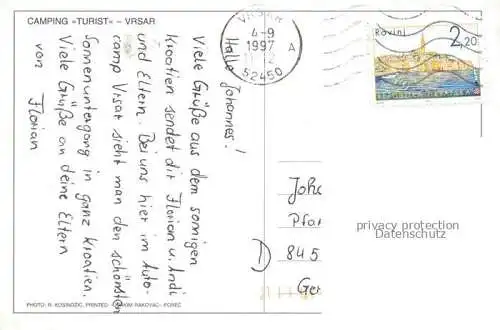 CAMPING »TURIST« – VRSAR
Hallo Johannes!
Viele Grüße aus dem sonnigen
Kroatien sendet dir Florian u. Andi
und Eltern. Bei uns hier im Auto-
camp Vrsar sieht man den schönsten
Sonnenuntergang in ganz Kroatien.
Viele Grüße an deine Eltern
von Florian
VRSAR
4-9
1997
A
52450
Rovinj
2,20
REPUBLIKA HRVATSKA
Joha
Pfar
845
Ger
D
privacy protection
Datenschutz
PHOTO: R. KOSINOŽIĆ, PRINTED: RAKOVAC - POREČ